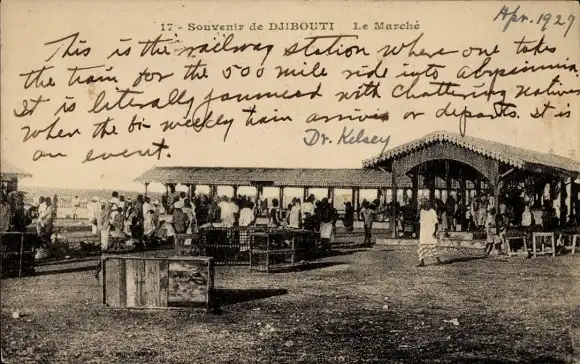 17 - Souvenir de DJIBOUTI Le Marché
Apr. 1929
This is the railway station where one takes
the train for the 500 mile ride into Abyssinnia
It is literally jammed with chattering natives
when the bi-weekly train arrives or departs. It is
an event.
Dr. Kelsey